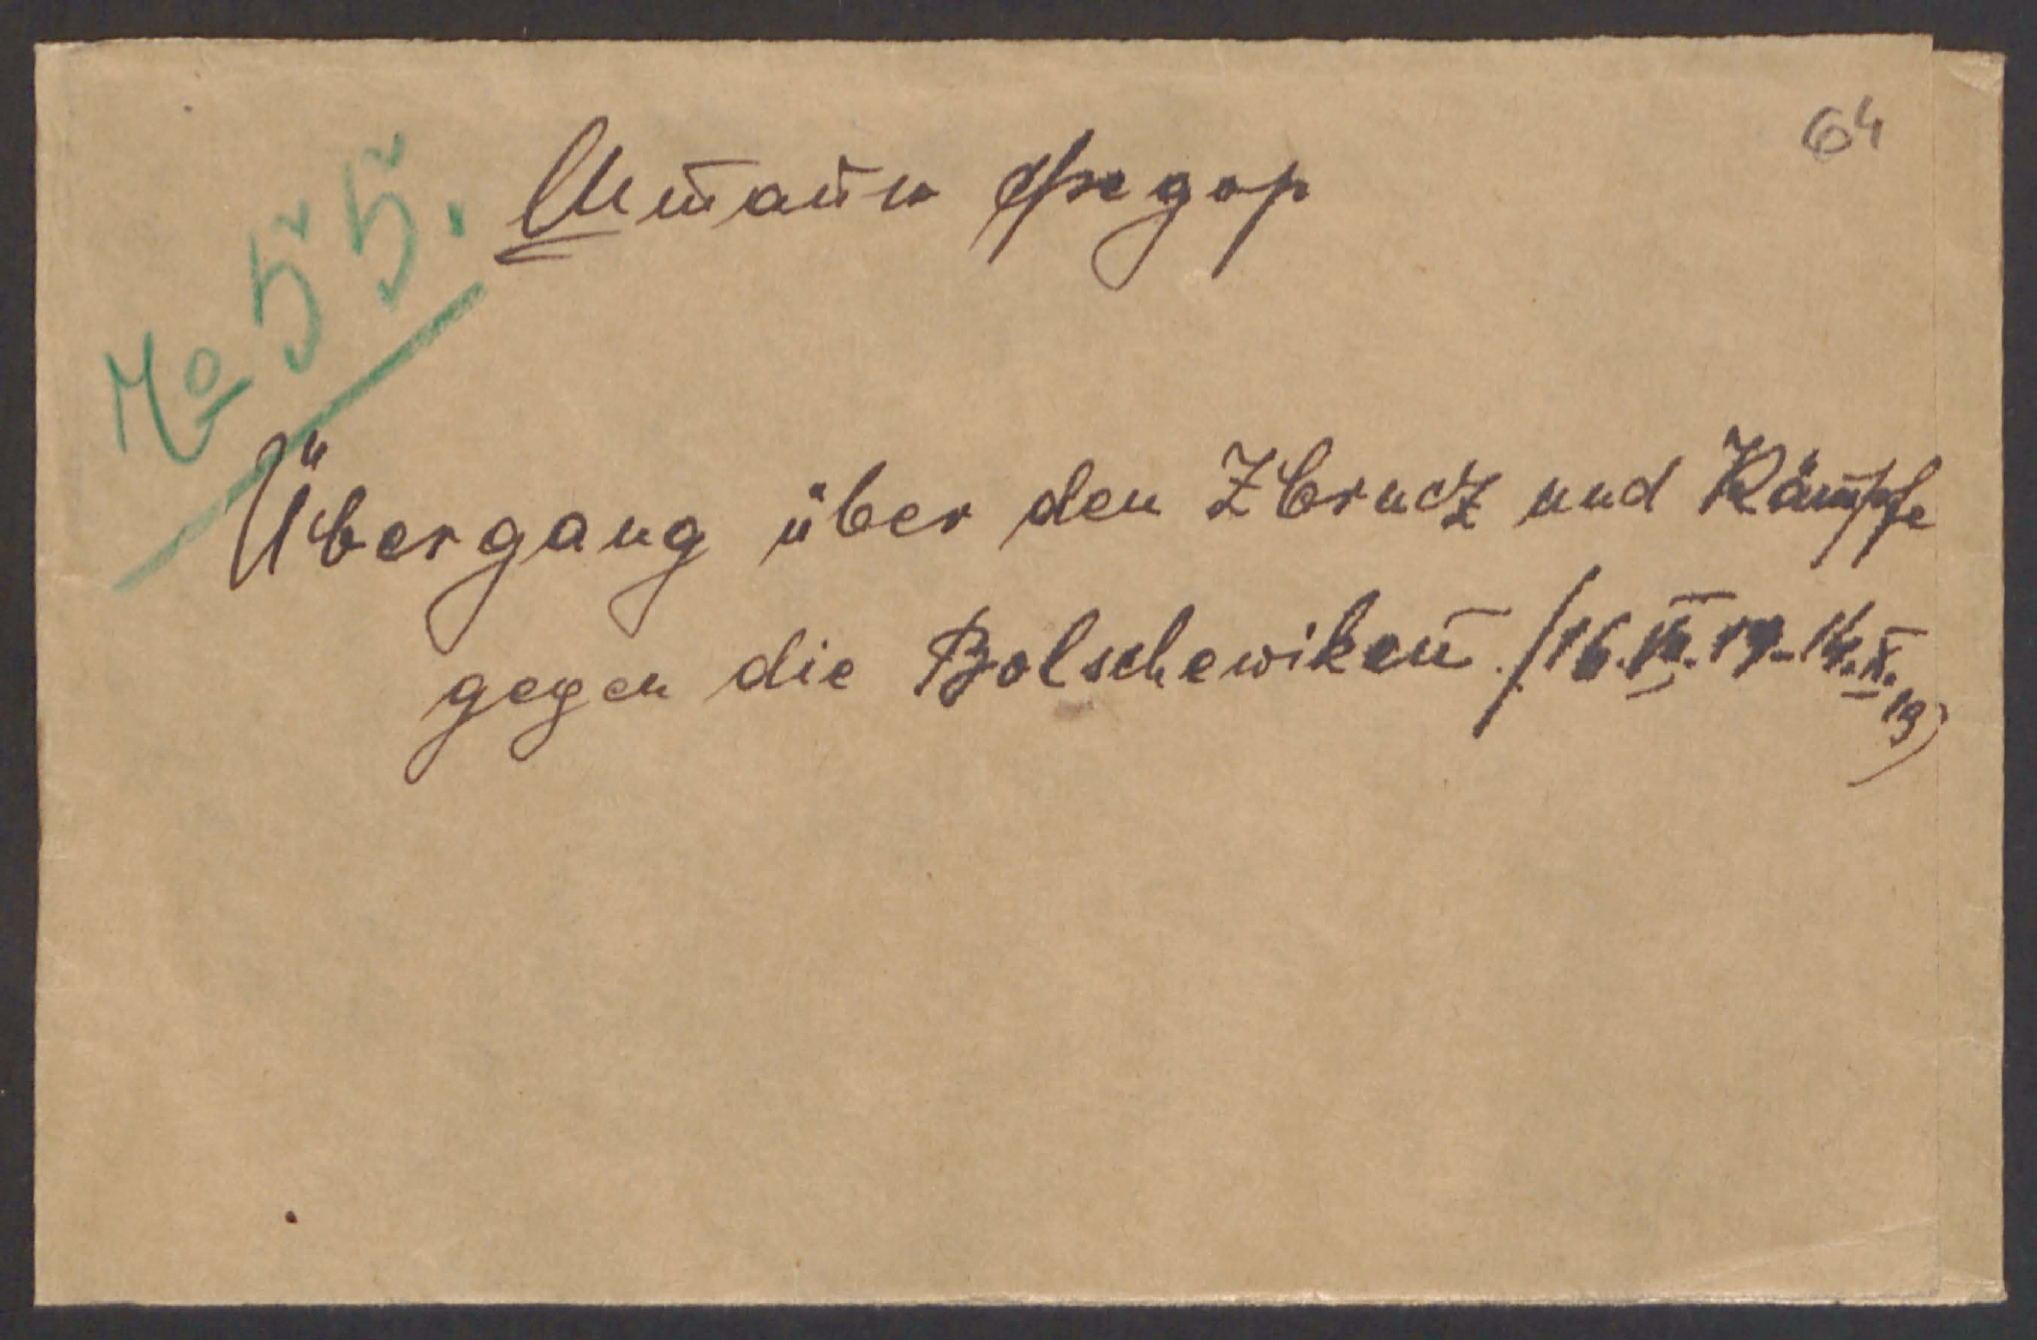 64
№ 55.
Штайн Федор
Übergang über den Zbrucz und Kämpfe
gegen die Bolschewiken. (16.
19)